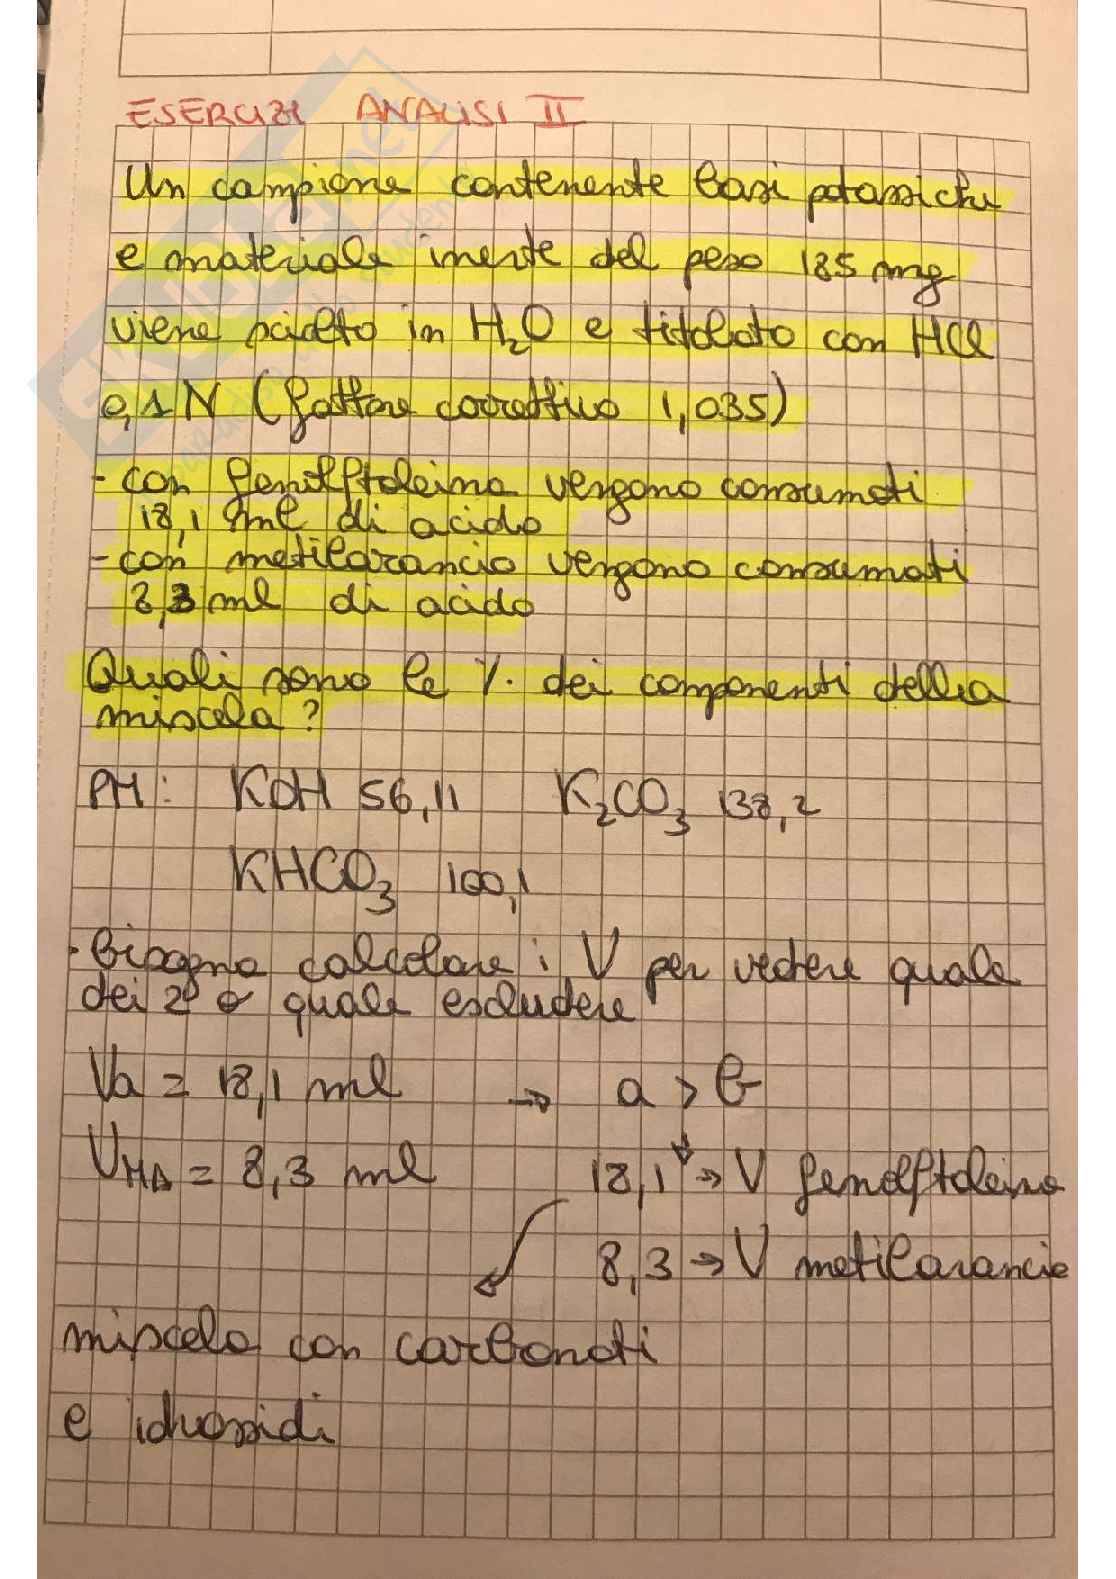 ESERCIZI ANALISI II
Un campione contenente basi potassiche
e materiale inerte del peso 185 mg
viene sciolto in H2O e titolato con HCl
0,1 N (fattore correttivo 1,035)
- con fenolftaleina vengono consumati
18,1 ml di acido
- con metilarancio vengono consumati
8,3 ml di acido
Quali sono le % dei componenti della
miscela?
PM: KOH 56,11 K2CO3 138,2
KHCO3 100,1
• Bisogna calcolare i V per vedere quale
dei 2 o quale escludere
Va = 18,1 ml → a > b
VMA = 8,3 ml 18,1 → V fenolftaleina
8,3 → V metilarancio
miscela con carbonati
e idrossidi